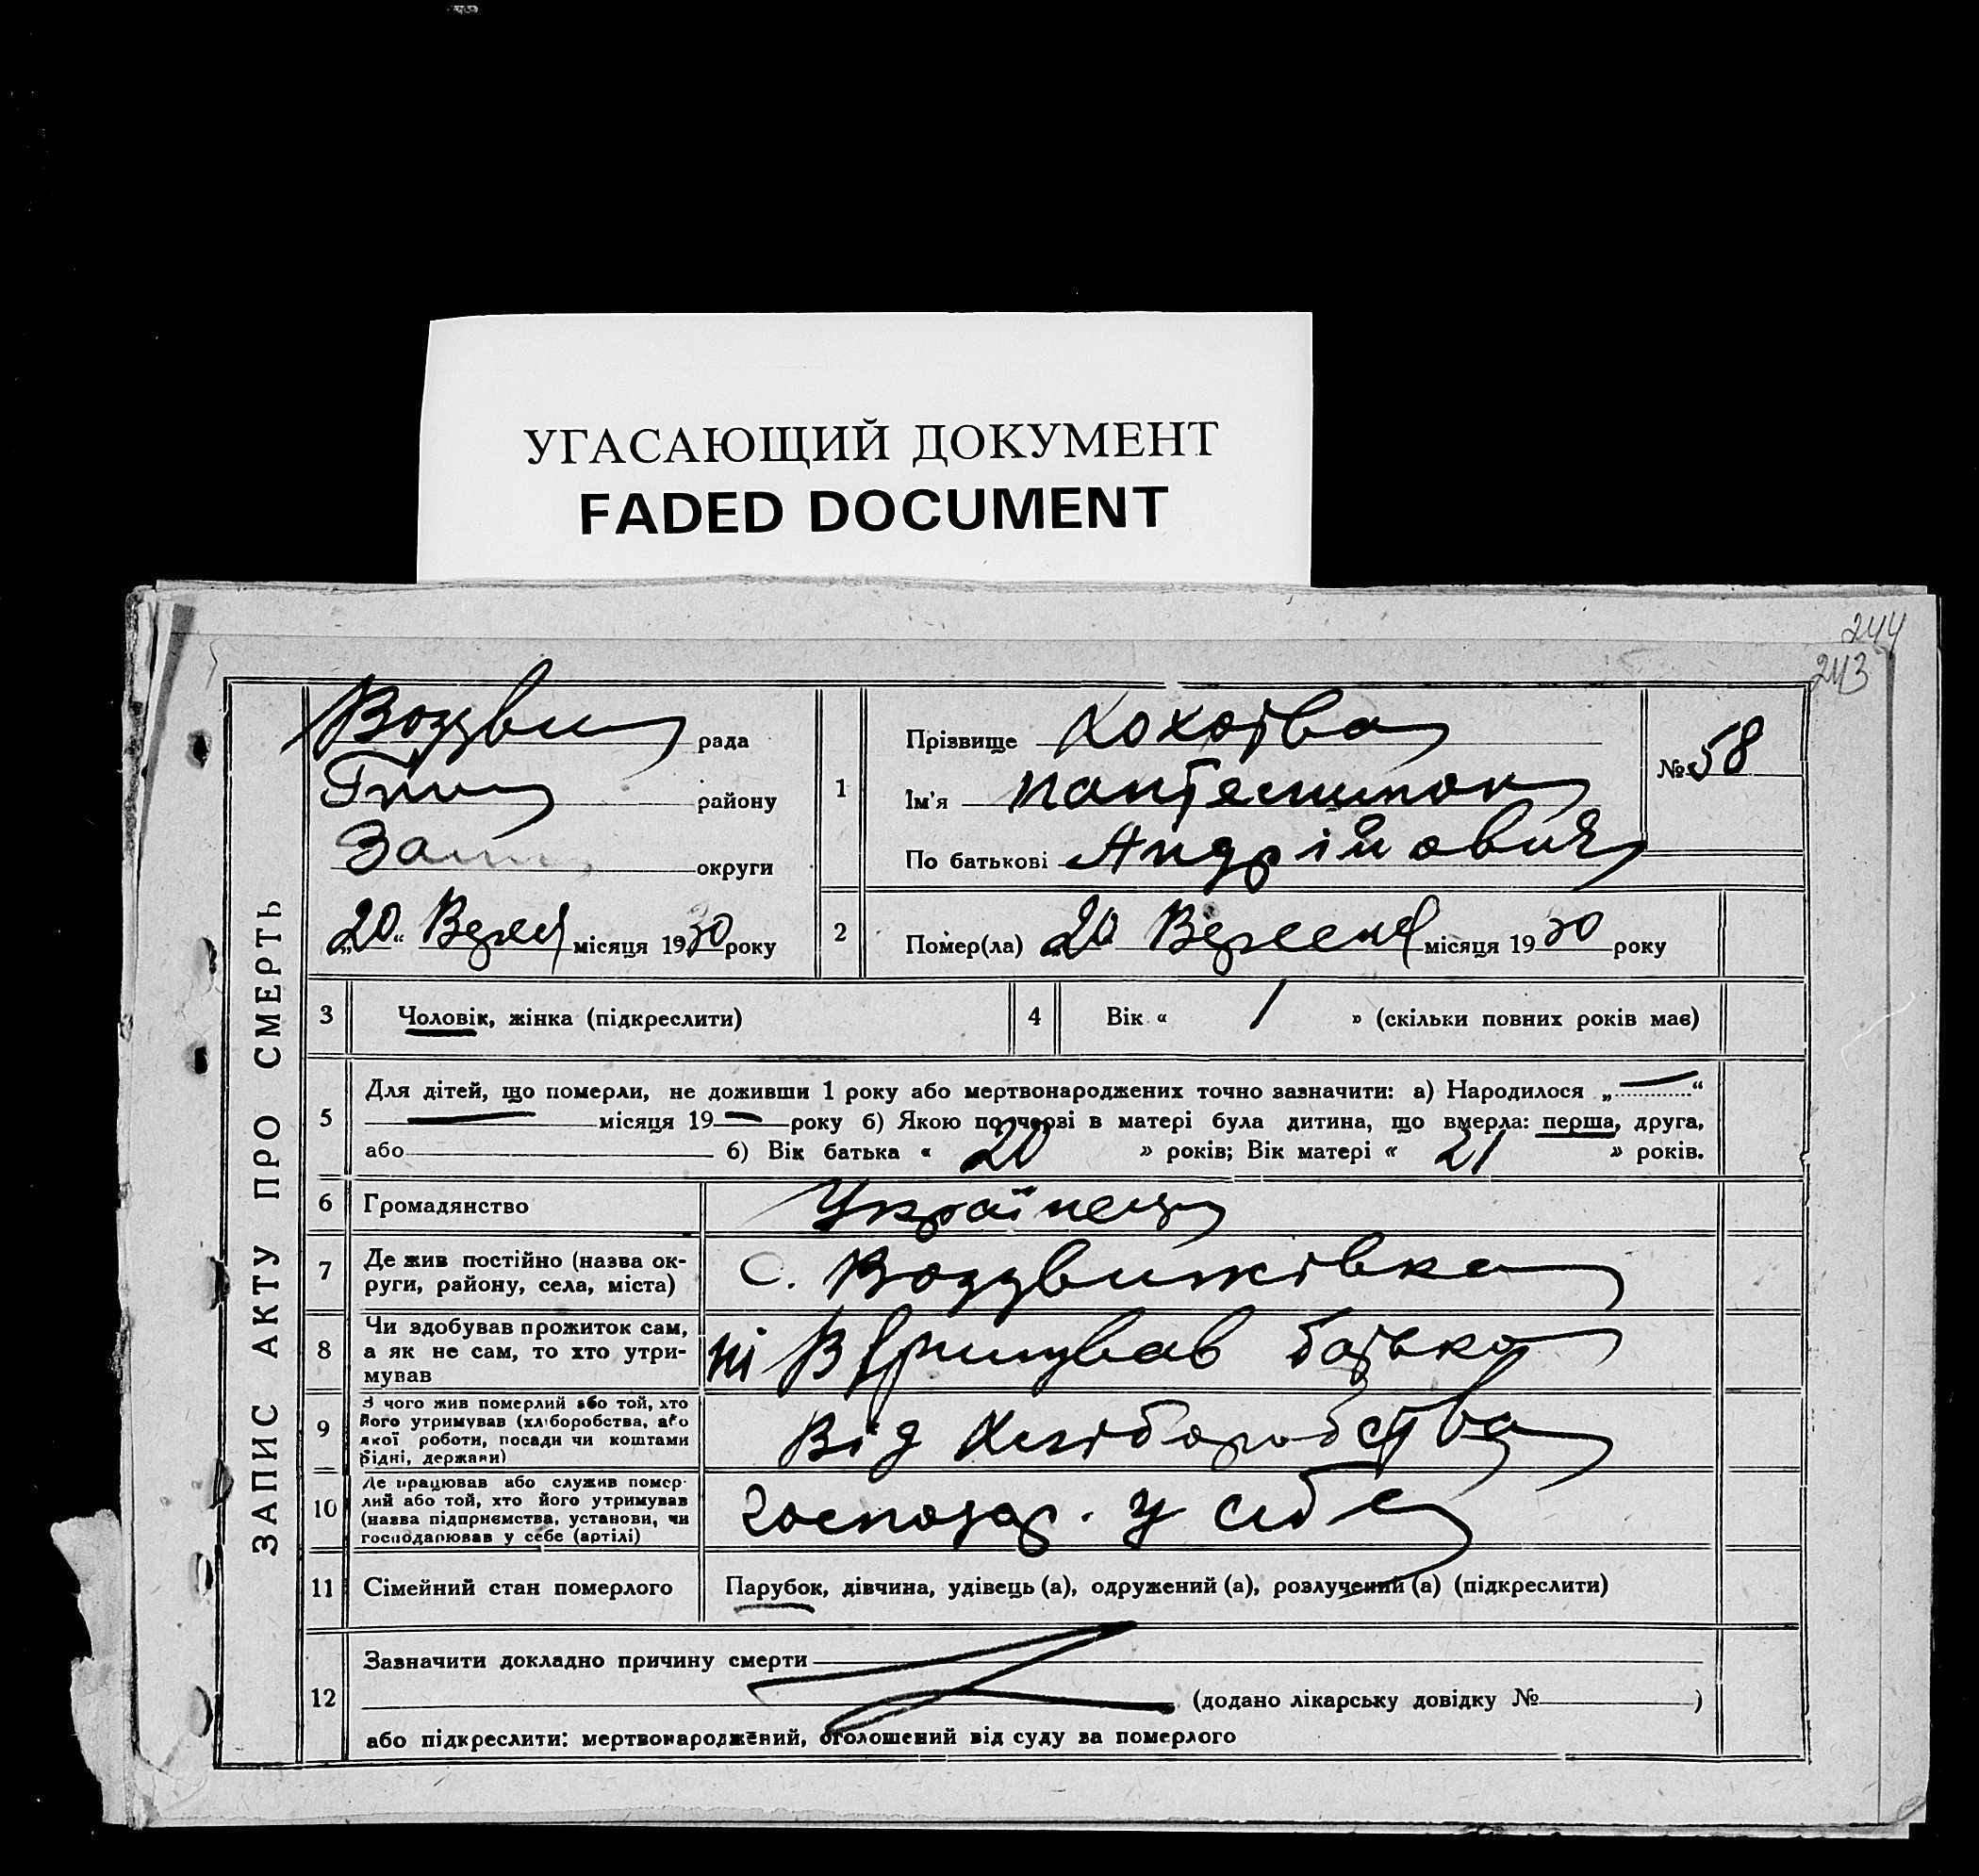 УГАСАЮЩИЙ ДОКУМЕНТ
FADED DOCUMENT
244
243
ЗАПИС АКТУ ПРО СМЕРТЬ
Воздви рада
району
округи
„20“ Верес місяця 1930 року
1
Прізвище
Ім'я
По батькові Андрійович
№ 58
2
Помер(ла) 20 Вересня місяця 1930 року
3
Чоловік, жінка (підкреслити)
4
Вік « 1 » (скільки повних років має)
5
Для дітей, що померли, не доживши 1 року або мертвонароджених точно зазначити: а) Народилося „—“
— місяця 19— року б) Якою по черзі в матері була дитина, що вмерла: перша, друга,
або 6) Вік батька « 20 » років; Вік матері « 21 » років.
6
Громадянство Українец
7
Де жив постійно (назва ок-
руги, району, села, міста)
с. Воздвижівка
8
Чи здобував прожиток сам,
а як не сам, то хто утри-
мував
ні Втримував батько
9
З чого жив померлий або той, хто
його утримував (хліборобства, або
якої роботи, посади чи коштами
рідні, держави)
Від Хліборобства
10
Де працював або служив помер-
лий або той, хто його утримував
(назва підприємства, установи, чи
господарював у себе (артілі)
господар. у себе
11
Сімейний стан померлого
Парубок, дівчина, удівець (а), одружений (а), розлучений (а) (підкреслити)
12
Зазначити докладно причину смерти
(додано лікарську довідку № )
або підкреслити: мертвонароджений, оголошений від суду за померлого